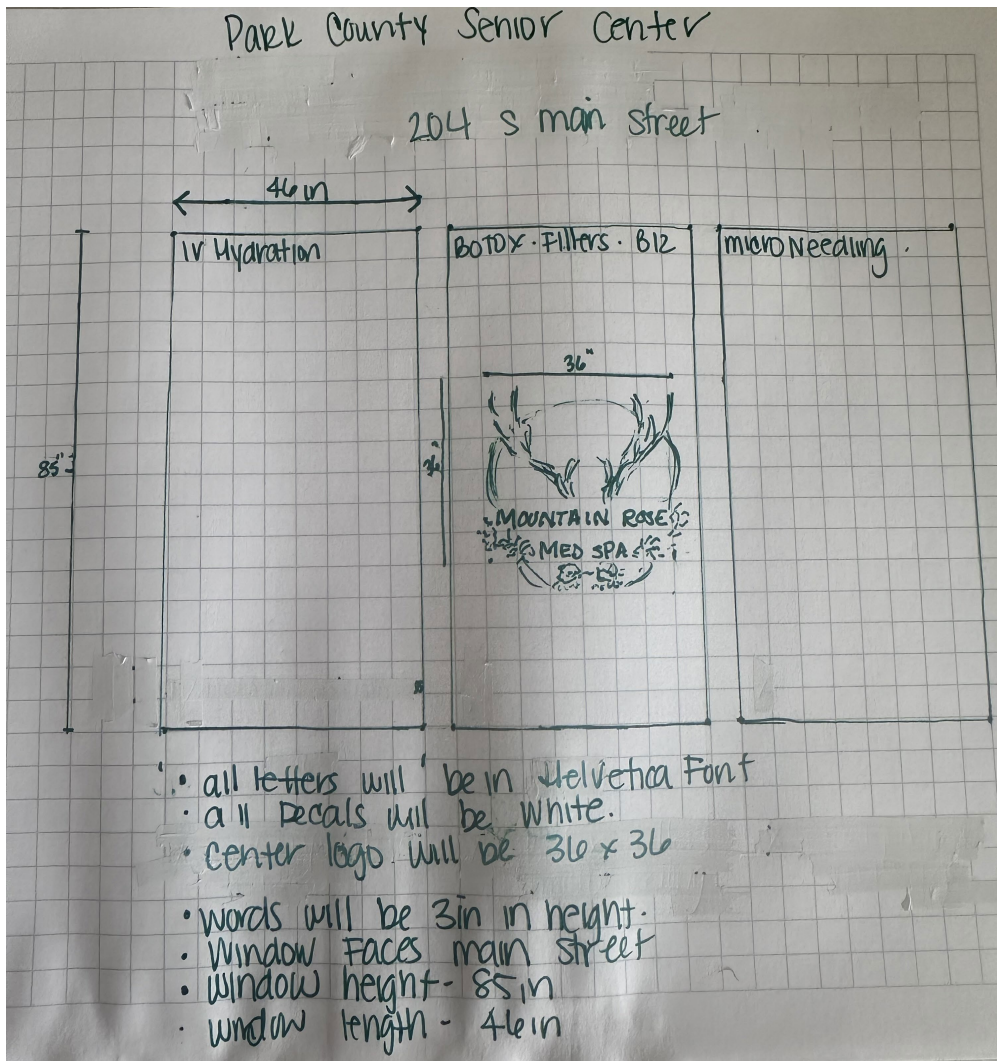 Park County Senior Center
204 S main street
46 in
IV Hydration
BOTOX · Fillers · B12
microNeedling .
36"
85"
36"
MOUNTAIN ROSE
MED SPA
· all letters will be in Helvetica Font
· all Decals will be White.
· center logo will be 36 x 36
· words will be 3in in height.
· Window Faces main street
· window height - 85in
· window length - 46in